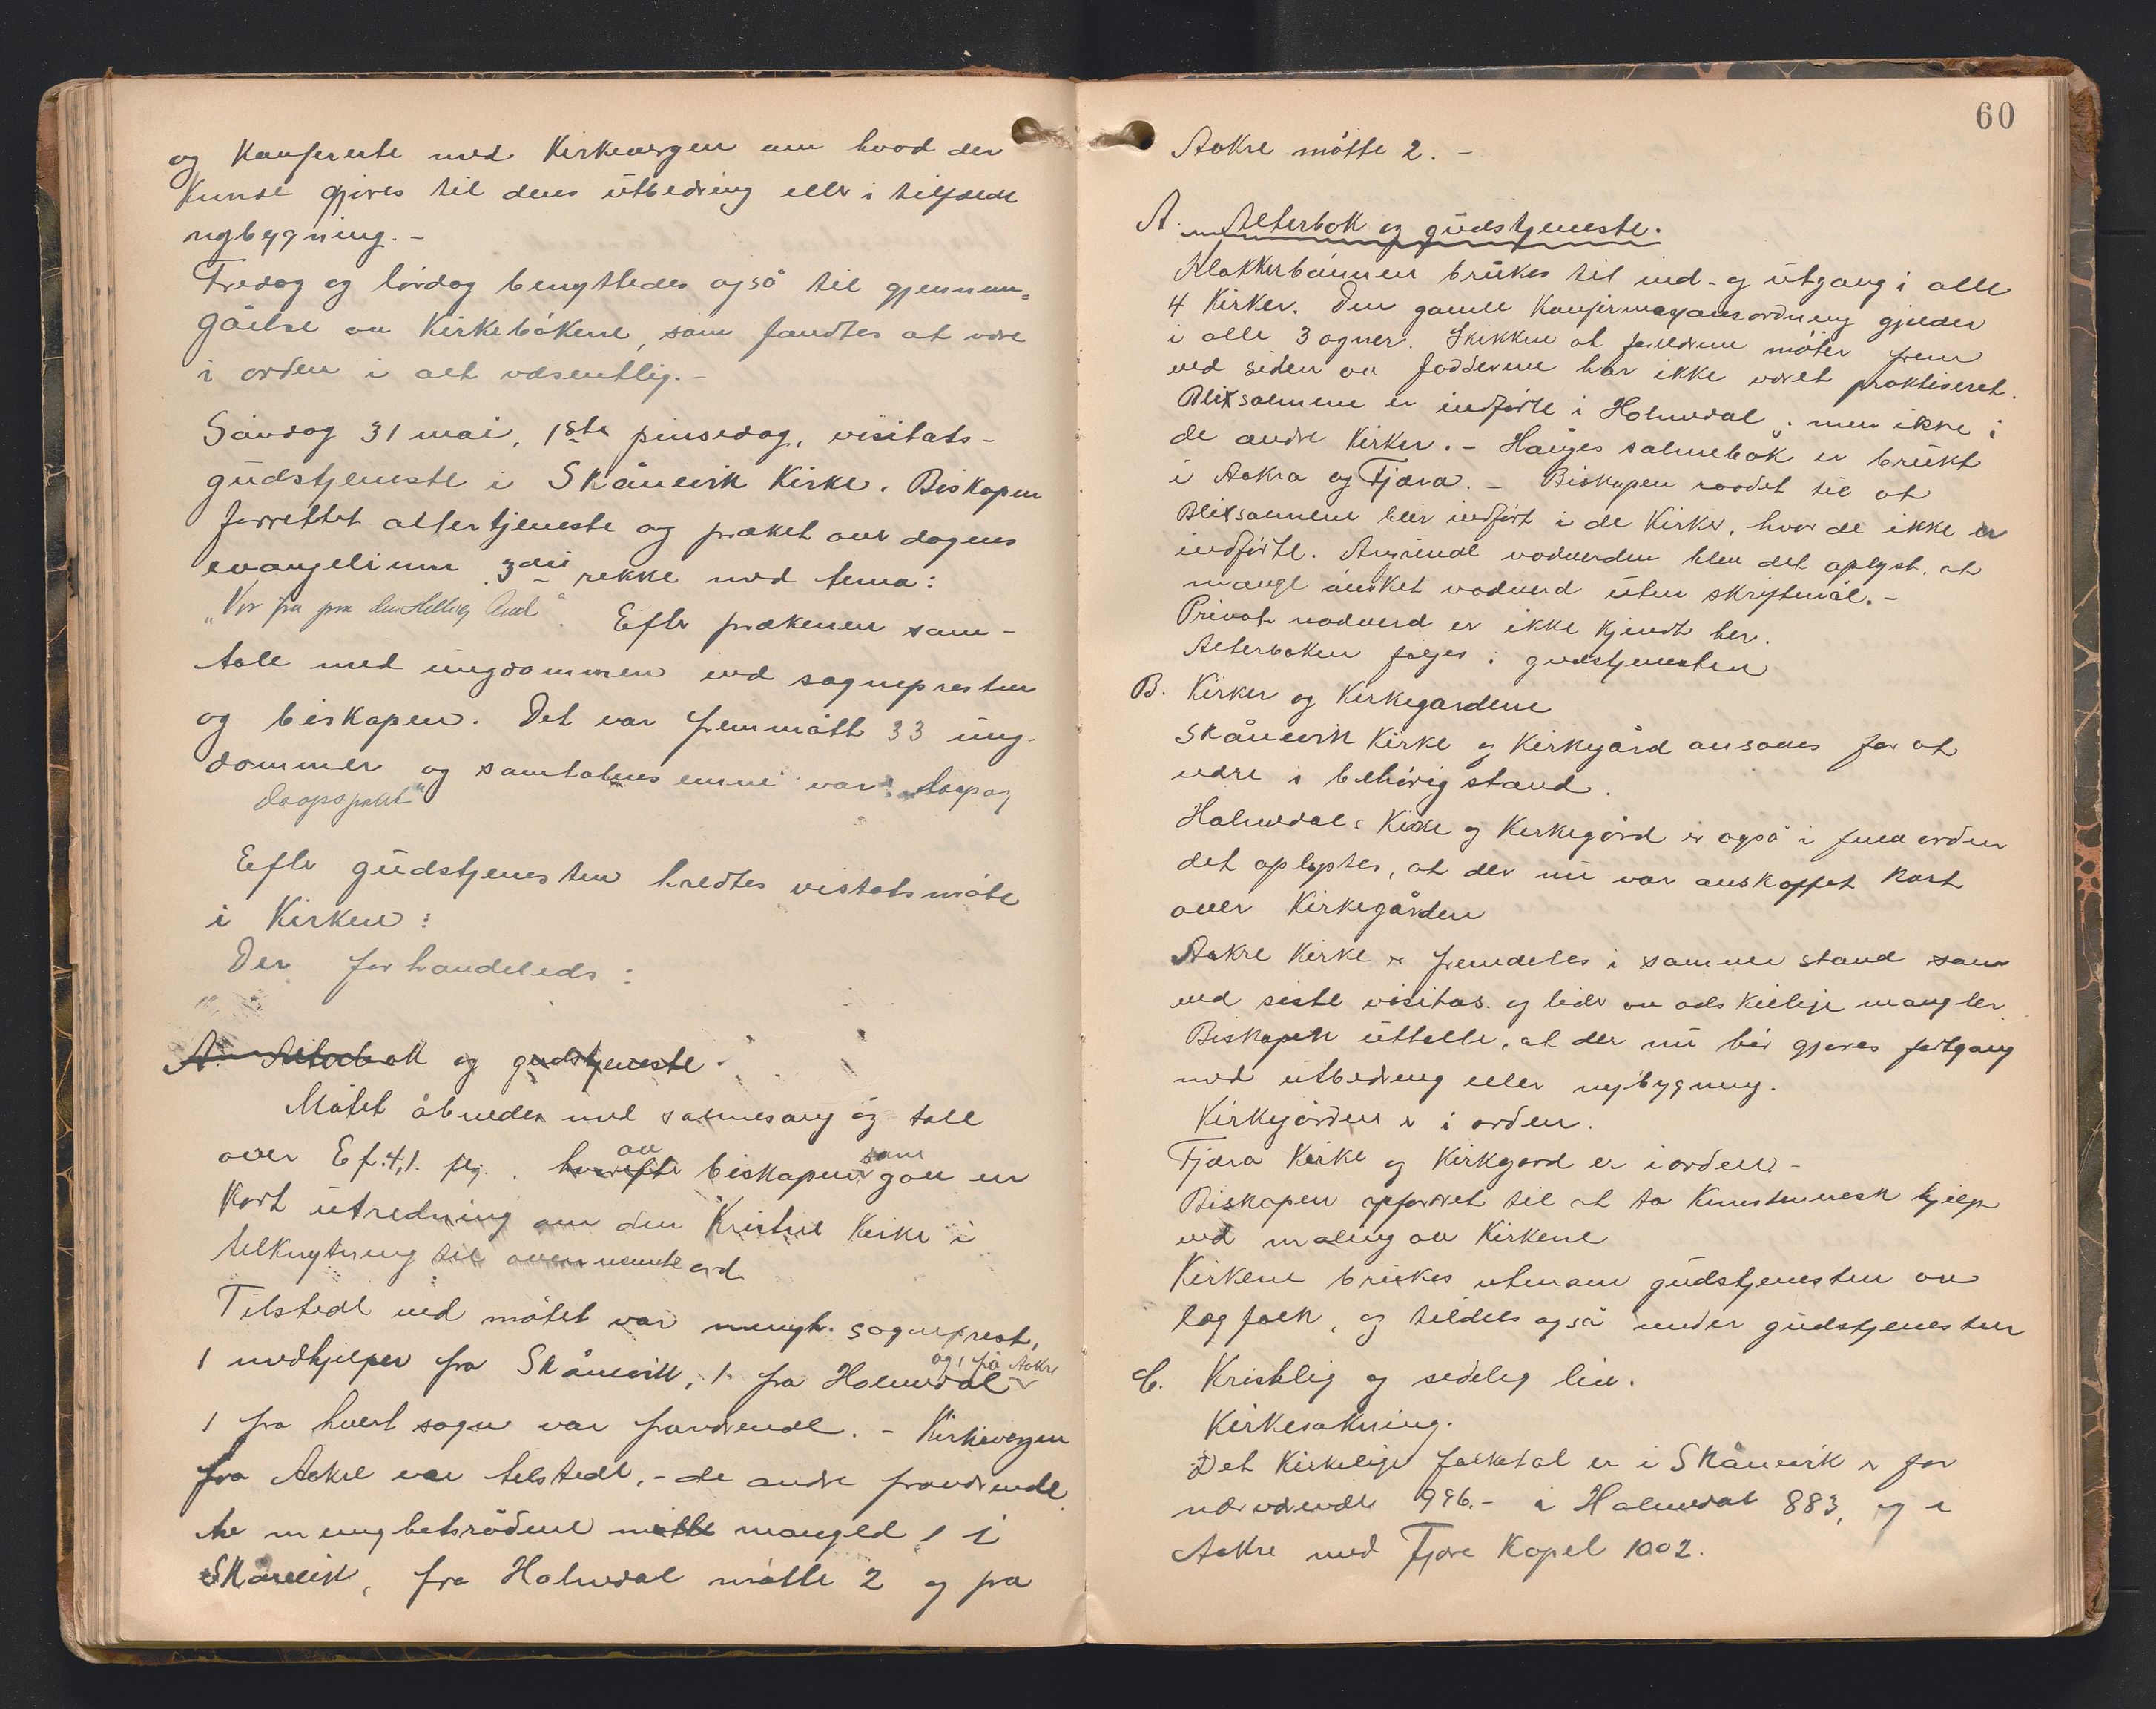 og Konfererte med Kirkevergen om hvad der
Kunde gjöres til dens utbedring eller i tilfælde
nybygning. -
Fredag og lördag benyttedes også til gjennem=
gåelse av Kirkebökene, som fandtes at være
i orden i alt væsentlig. -
Söndag 31 mai, 1ste pinsedag, visitats-
gudstjeneste i Skånevik Kirke. Biskopen
forrettet altertjeneste og præket over dagens
evangelium 3die rekke med tema:
Efter prækenen sam-
tale med ungdommen ved sognepresten
og biskopen. Det var fremmött 33 ung-
dommer og samtalens emne var: daap og
daapspakt"
Efter gudstjenesten holdtes visitatsmöte
i Kirken:
Der forhandleds:
A. Alterbok og gudstjeneste.
Mötet åbnedes med salmesang og tale
over Ef. 4,1. flg. hvorefter av biskopen som gav en
Kort utredning om den Kristne Kirke i
tilknytning til ovennevnte ord
Tilstede ved mötet var menigh. sogneprest,
1 medhjelper fra Skånevik, 1 fra Holmedal og 1 frå Aakre
1 fra hvert sogn var fraværende. - Kirkevergen
fra Aakre var tilstede, - de andre fraværende.
Av menighetsrådene mötte mangled 1 i
Skånevik, fra Holmedal mötte 2 og fra
60
Aakre mötte 2. -
A. Alterbok og gudstjeneste.
Klokkerbönnen brukes til ind- og utgang i alle
4 Kirker. Den gamle Konfirmasjonsordning gjelder
i alle 3 sogner. Skikken at foreldrene möter frem
ved siden av fadderene har ikke været praktiseret.
Blixsalmene er indförte i Holmedal, men ikke i
de andre Kirker. - Hauges salmebok er brukt
i Aakra og Fjæra. - Biskopen raadet til at
Blixsalmene blir indfört i de Kirker, hvor de ikke er
indförte. Angående nadverden blev det oplyst, at
mange önsket nadverd uten skriftemål. -
Privat nadverd er ikke kjendt her.
Alterboken fölges i gudstjenesten
B. Kirker og Kirkegardene
Skånevik Kirke og Kirkegård ansaaes for at
være i behörig stand.
Holmedals Kirke og Kirkegård er også i full orden
det oplystes, at der nu var anskaffet Kart
over Kirkegården
Aakre Kirke er fremdeles i samme stand som
ved siste visitas. og lider av adskillige mangler.
Biskopen uttalte, at der nu bör gjöres fortgang
med utbedring eller nybygning.
Kirkegården er i orden.
Fjæra Kirke og Kirkegard er i orden -
Biskopen opfordret til at ta Kunstnerisk hjelp
ved maling av Kirkene
Kirkene brukes utenom gudstjenesten av
lægfolk, og tildels også under gudstjenesten
C. Kristelig og sedelig liv.
Kirkesökning.
Det Kirkelige folketal er i Skånevik er for
nærværende 996. - i Holmedal 883, og i
Aakre med Fjære Kapel 1002.